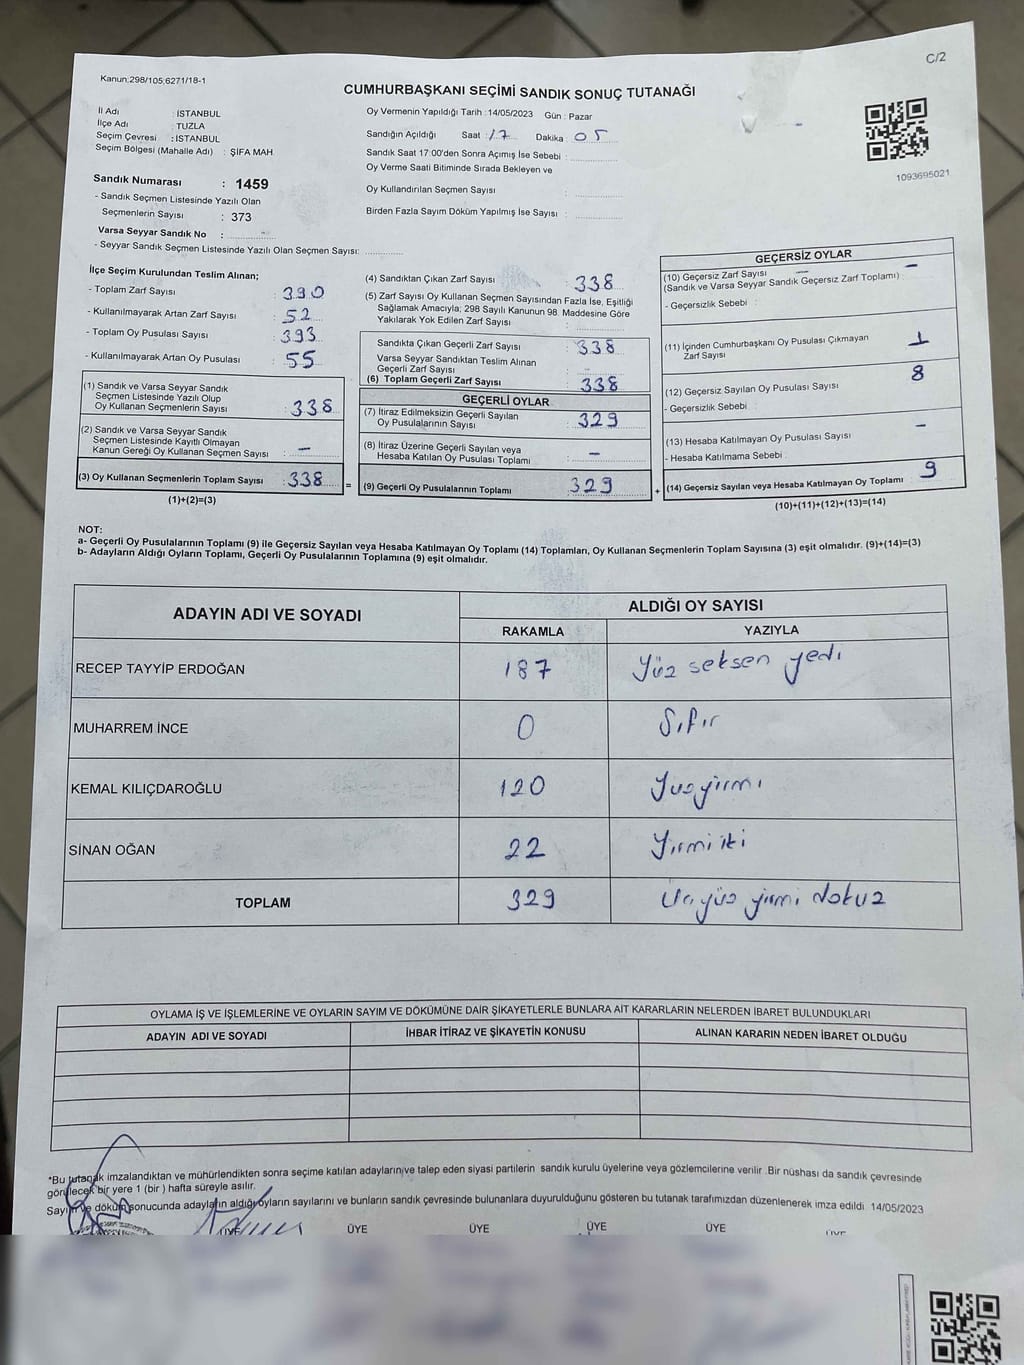 C/2
Kanun.298/105.6271/18-1
CUMHURBAŞKANI SEÇİMİ SANDIK SONUÇ TUTANAĞI
İl Adı : İSTANBUL
İlçe Adı : TUZLA
Seçim Çevresi : İSTANBUL
Seçim Bölgesi (Mahalle Adı) : ŞİFA MAH.
Oy Vermenin Yapıldığı Tarih :14/05/2023 Gün : Pazar
Sandığın Açıldığı Saat : 17 Dakika 05
Sandık Saat 17:00'den Sonra Açımış İse Sebebi :
Oy Verme Saati Bitiminde Sırada Bekleyen ve
Oy Kullandırılan Seçmen Sayısı :
Birden Fazla Sayım Döküm Yapılmış İse Sayısı :
1093695021
Sandık Numarası : 1459
- Sandık Seçmen Listesinde Yazılı Olan
Seçmenlerin Sayısı : 373
Varsa Seyyar Sandık No :
- Seyyar Sandık Seçmen Listesinde Yazılı Olan Seçmen Sayısı:
İlçe Seçim Kurulundan Teslim Alınan;
- Toplam Zarf Sayısı : 390
- Kullanılmayarak Artan Zarf Sayısı : 52
- Toplam Oy Pusulası Sayısı : 393
- Kullanılmayarak Artan Oy Pusulası : 55
(1) Sandık ve Varsa Seyyar Sandık
Seçmen Listesinde Yazılı Olup
Oy Kullanan Seçmenlerin Sayısı : 338
(2) Sandık ve Varsa Seyyar Sandık
Seçmen Listesinde Kayıtlı Olmayan
Kanun Gereği Oy Kullanan Seçmen Sayısı : —
(3) Oy Kullanan Seçmenlerin Toplam Sayısı : 338 =
(1)+(2)=(3)
(4) Sandıktan Çıkan Zarf Sayısı : 338
(5) Zarf Sayısı Oy Kullanan Seçmen Sayısından Fazla İse, Eşitliği
Sağlamak Amacıyla; 298 Sayılı Kanunun 98. Maddesine Göre
Yakılarak Yok Edilen Zarf Sayısı :
Sandıkta Çıkan Geçerli Zarf Sayısı : 338
Varsa Seyyar Sandıktan Teslim Alınan
Geçerli Zarf Sayısı :
(6) Toplam Geçerli Zarf Sayısı : 338
GEÇERLİ OYLAR
(7) İtiraz Edilmeksizin Geçerli Sayılan
Oy Pusulalarının Sayısı : 329
(8) İtiraz Üzerine Geçerli Sayılan veya
Hesaba Katılan Oy Pusulası Toplamı : —
(9) Geçerli Oy Pusulalarının Toplamı 329 +
GEÇERSİZ OYLAR
(10) Geçersiz Zarf Sayısı —
(Sandık ve Varsa Seyyar Sandık Geçersiz Zarf Toplamı) :
- Geçersizlik Sebebi :
(11) İçinden Cumhurbaşkanı Oy Pusulası Çıkmayan
Zarf Sayısı 1
(12) Geçersiz Sayılan Oy Pusulası Sayısı 8
- Geçersizlik Sebebi :
(13) Hesaba Katılmayan Oy Pusulası Sayısı —
- Hesaba Katılmama Sebebi :
(14) Geçersiz Sayılan veya Hesaba Katılmayan Oy Toplamı 9
(10)+(11)+(12)+(13)=(14)
NOT:
a- Geçerli Oy Pusulalarının Toplamı (9) ile Geçersiz Sayılan veya Hesaba Katılmayan Oy Toplamı (14) Toplamları, Oy Kullanan Seçmenlerin Toplam Sayısına (3) eşit olmalıdır. (9)+(14)=(3)
b- Adayların Aldığı Oyların Toplamı, Geçerli Oy Pusulalarının Toplamına (9) eşit olmalıdır.
ADAYIN ADI VE SOYADI ALDIĞI OY SAYISI
RAKAMLA YAZIYLA
RECEP TAYYİP ERDOĞAN 187 Yüz seksen yedi
MUHARREM İNCE 0 Sıfır
KEMAL KILIÇDAROĞLU 120 Yüz yirmi
SİNAN OĞAN 22 Yirmi iki
TOPLAM 329 Üç yüz yirmi dokuz
OYLAMA İŞ VE İŞLEMLERİNE VE OYLARIN SAYIM VE DÖKÜMÜNE DAİR ŞİKAYETLERLE BUNLARA AİT KARARLARIN NELERDEN İBARET BULUNDUKLARI
ADAYIN ADI VE SOYADI İHBAR İTİRAZ VE ŞİKAYETİN KONUSU ALINAN KARARIN NEDEN İBARET OLDUĞU
*Bu tutanak imzalandıktan ve mühürlendikten sonra seçime katılan adayların ve talep eden siyasi partilerin sandık kurulu üyelerine veya gözlemcilerine verilir .Bir nüshası da sandık çevresinde
görülecek bir yere 1 (bir ) hafta süreyle asılır.
Sayım ve döküm sonucunda adayların aldığı oyların sayılarını ve bunların sandık çevresinde bulunanlara duyurulduğunu gösteren bu tutanak tarafımızdan düzenlenerek imza edildi 14/05/2023
ÜYE ÜYE ÜYE ÜYE ÜYE ÜYE